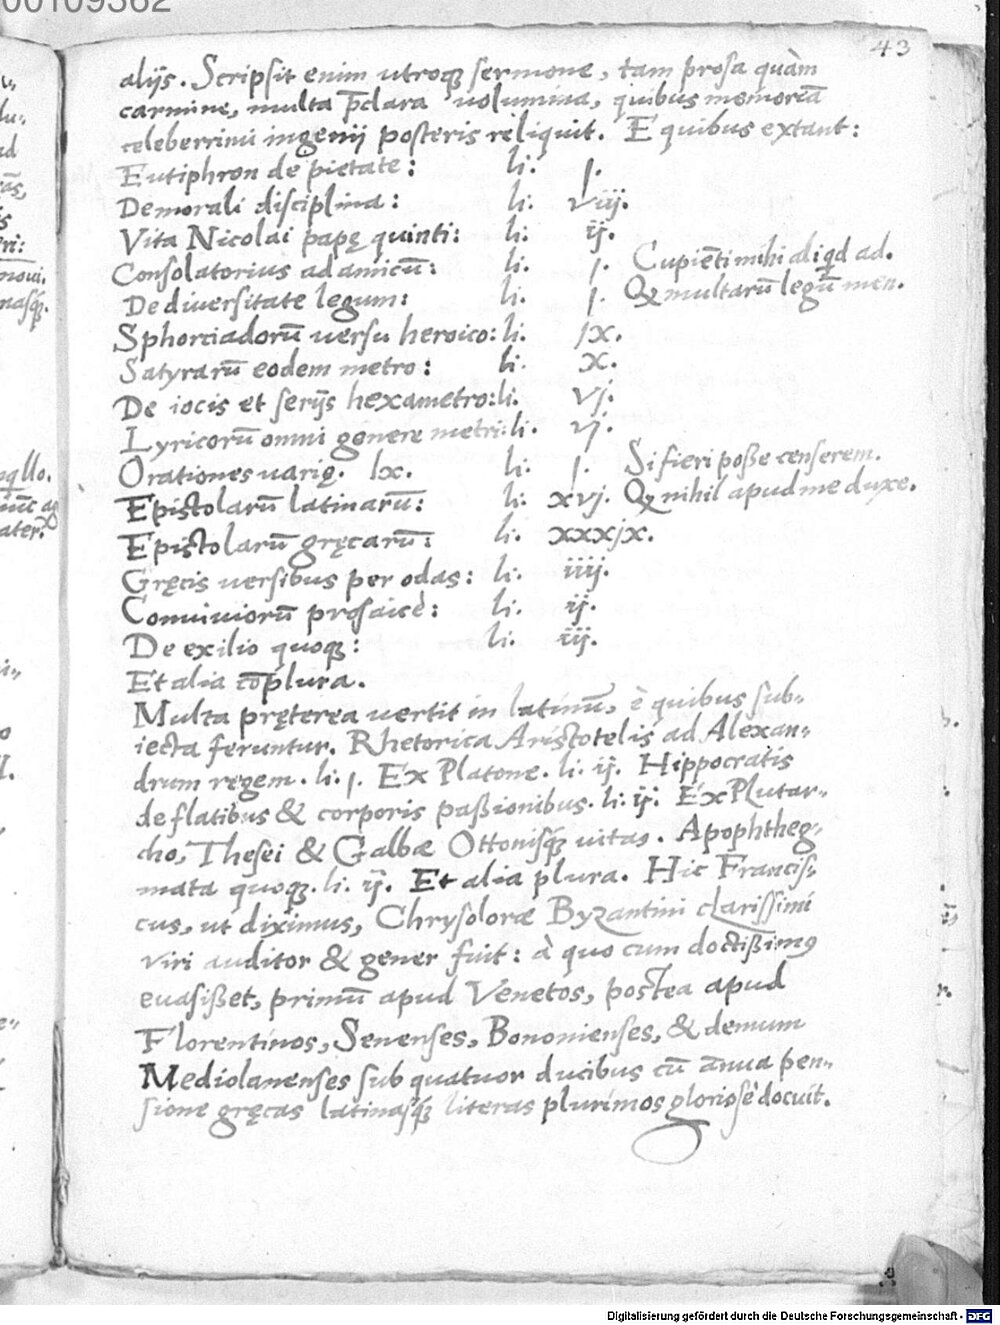 00109362
43
alijs. Scripsit enim utroq; sermone, tam prosa quàm
carmine, multa p̄clara uolumina, quibus memoreā
celeberrimi ingenij posteris reliquit. E quibus extant:
Eutiphron de pietate: li. j.
De morali disciplina: li. viij.
Vita Nicolai papę quinti: li. ij.
Consolatorius ad amicū: li. j. Cupiēti mihi aliqd ad.
De diuersitate legum: li. j. Qꝫ multarū legū men.
Sphorciadorū versu heroico: li. jx.
Satyrarū eodem metro: li. x.
De iocis et serijs hexametro: li. vj.
Lyricorū omni genere metri: li. vj.
Orationes varię. lx. li. j. Si fieri poße censerem.
Epistolarū latinarū: li. xvj. Qꝫ nihil apud me duxe.
Epistolarū gręcarū: li. xxxjx.
Gręcis versibus per odas: li. iiij.
Conuiuiorū prosaicè: li. ij.
De exilio quoq;: li. iij.
Et alia cōplura.
Multa pręterea vertit in latinū, è quibus sub-
iecta feruntur. Rhetorica Aristotelis ad Alexan-
drum regem. li. j. Ex Platone. li. ij. Hippocratis
de flatibus & corporis paßionibus. li. ij. Ex Plutar-
cho, Thesei & Galbæ Ottonisq; uitas. Apophtheg-
mata quoq;. li. ij. Et alia plura. Hic Francis-
cus, ut diximus, Chrysoloræ Byzantini clarissimi
viri auditor & gener fuit: à quo cum doctißimꝰ
euasißet, primū apud Venetos, postea apud
Florentinos, Senenses, Bononienses, & demum
Mediolanenses sub quatuor ducibus cū ānua pen-
sione gręcas latinasq; literas plurimos gloriosè docuit.
Digitalisierung gefördert durch die Deutsche Forschungsgemeinschaft - DFG